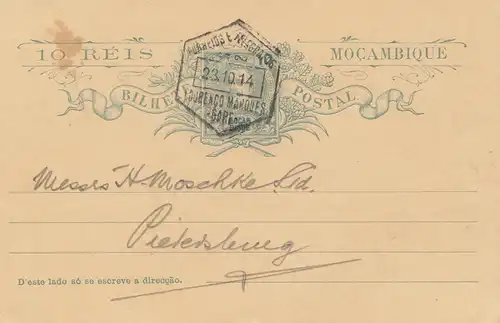 10 RÉIS MOÇAMBIQUE
BILHETE POSTAL
CORREIOS E TELEGRAPHOS
23.10.14
LOURENÇO MARQUES
GARE
Messrs H Moschke Ltd.
Pietersburg
D'este lado só se escreve a direcção.